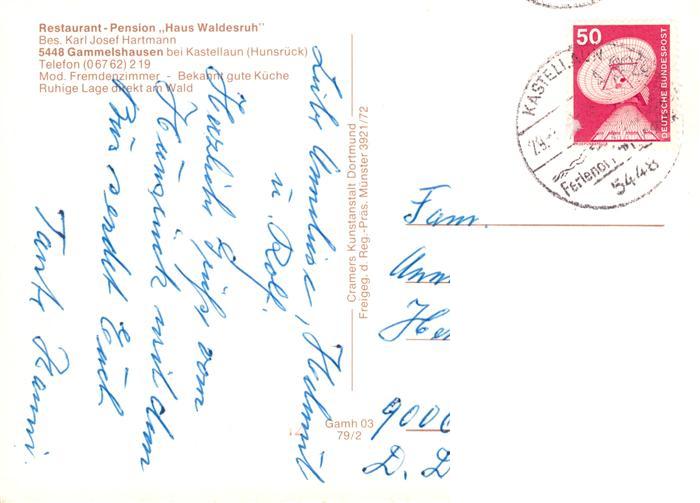 Restaurant - Pension „Haus Waldesruh"
Bes. Karl Josef Hartmann
5448 Gammelshausen bei Kastellaun (Hunsrück)
Telefon (0 67 62) 2 19
Mod. Fremdenzimmer - Bekannt gute Küche
Ruhige Lage direkt am Wald
Liebe Annelies, Helmut
u. Rolf.
Herzliche Grüße vom
Hunsrück mit dem
Bus sendet Euch
Tante
Cramers Kunstanstalt Dortmund
Freigeg. d. Reg.-Präs. Münster 3921/72
Gamh 03
79/2
50
DEUTSCHE BUNDESPOST
KASTELLAUN
Ferienort
5448
Fam.
Ann
He
D.